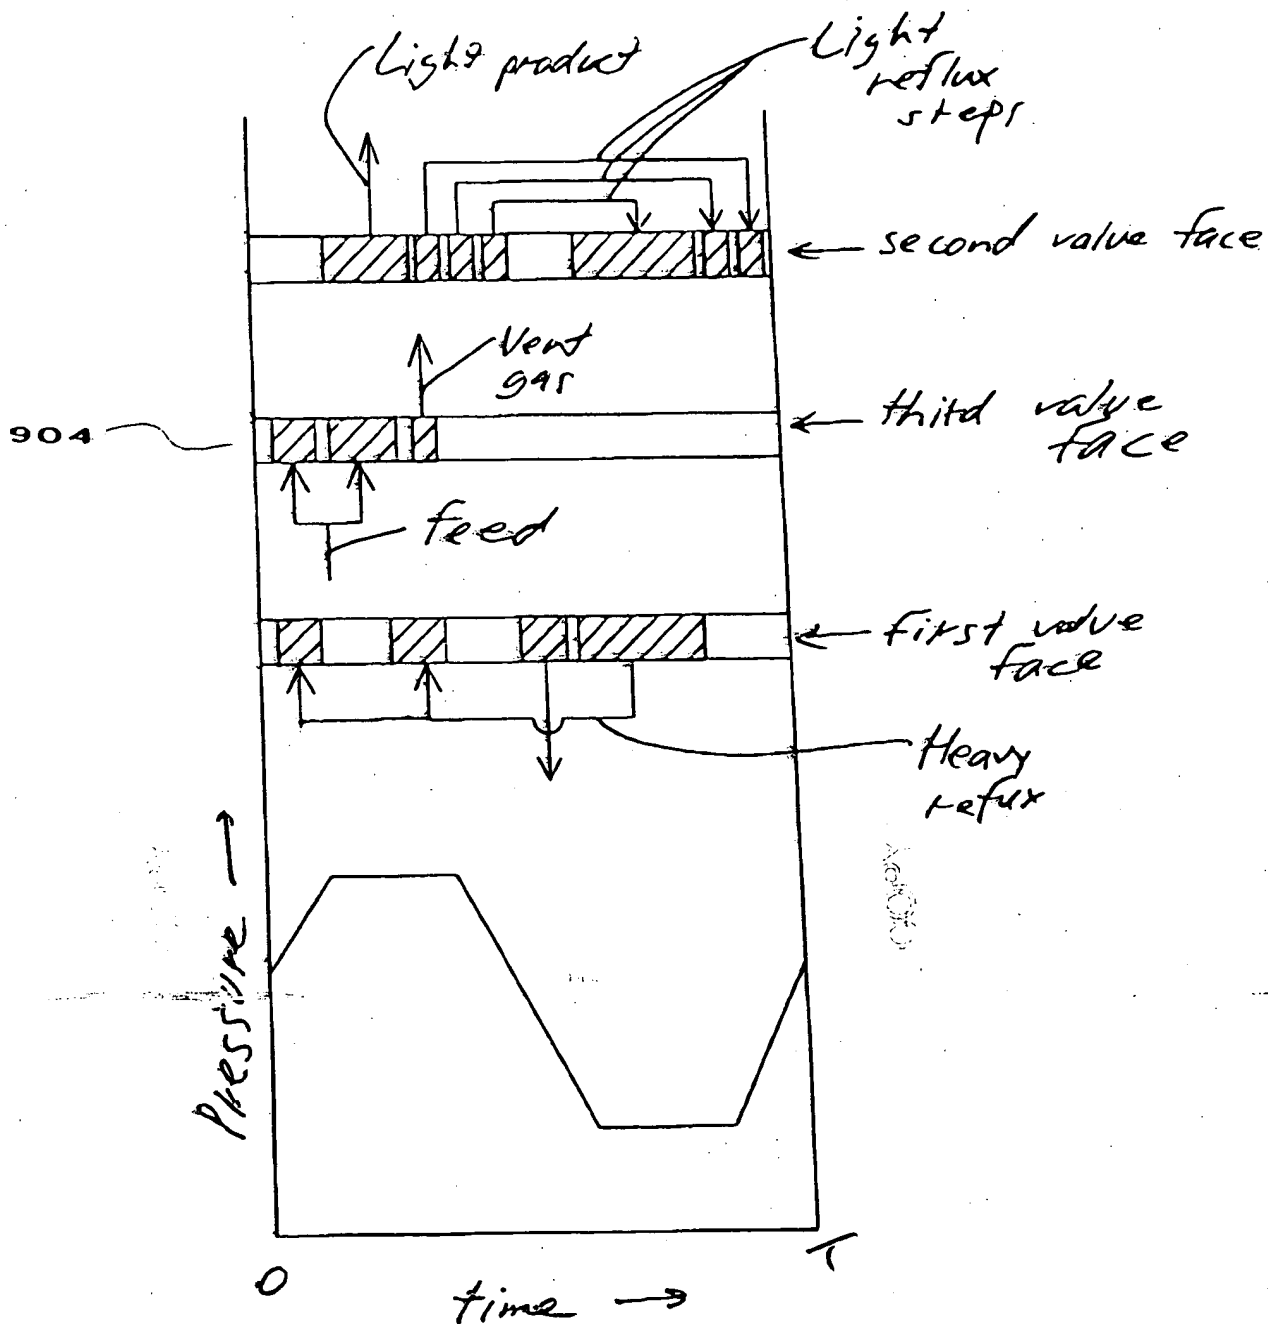 Light product
Light
reflux
steps
second value face
Vent
gas
904
third value
face
feed
first value
face
Heavy
refux
Pressure
0
T
time